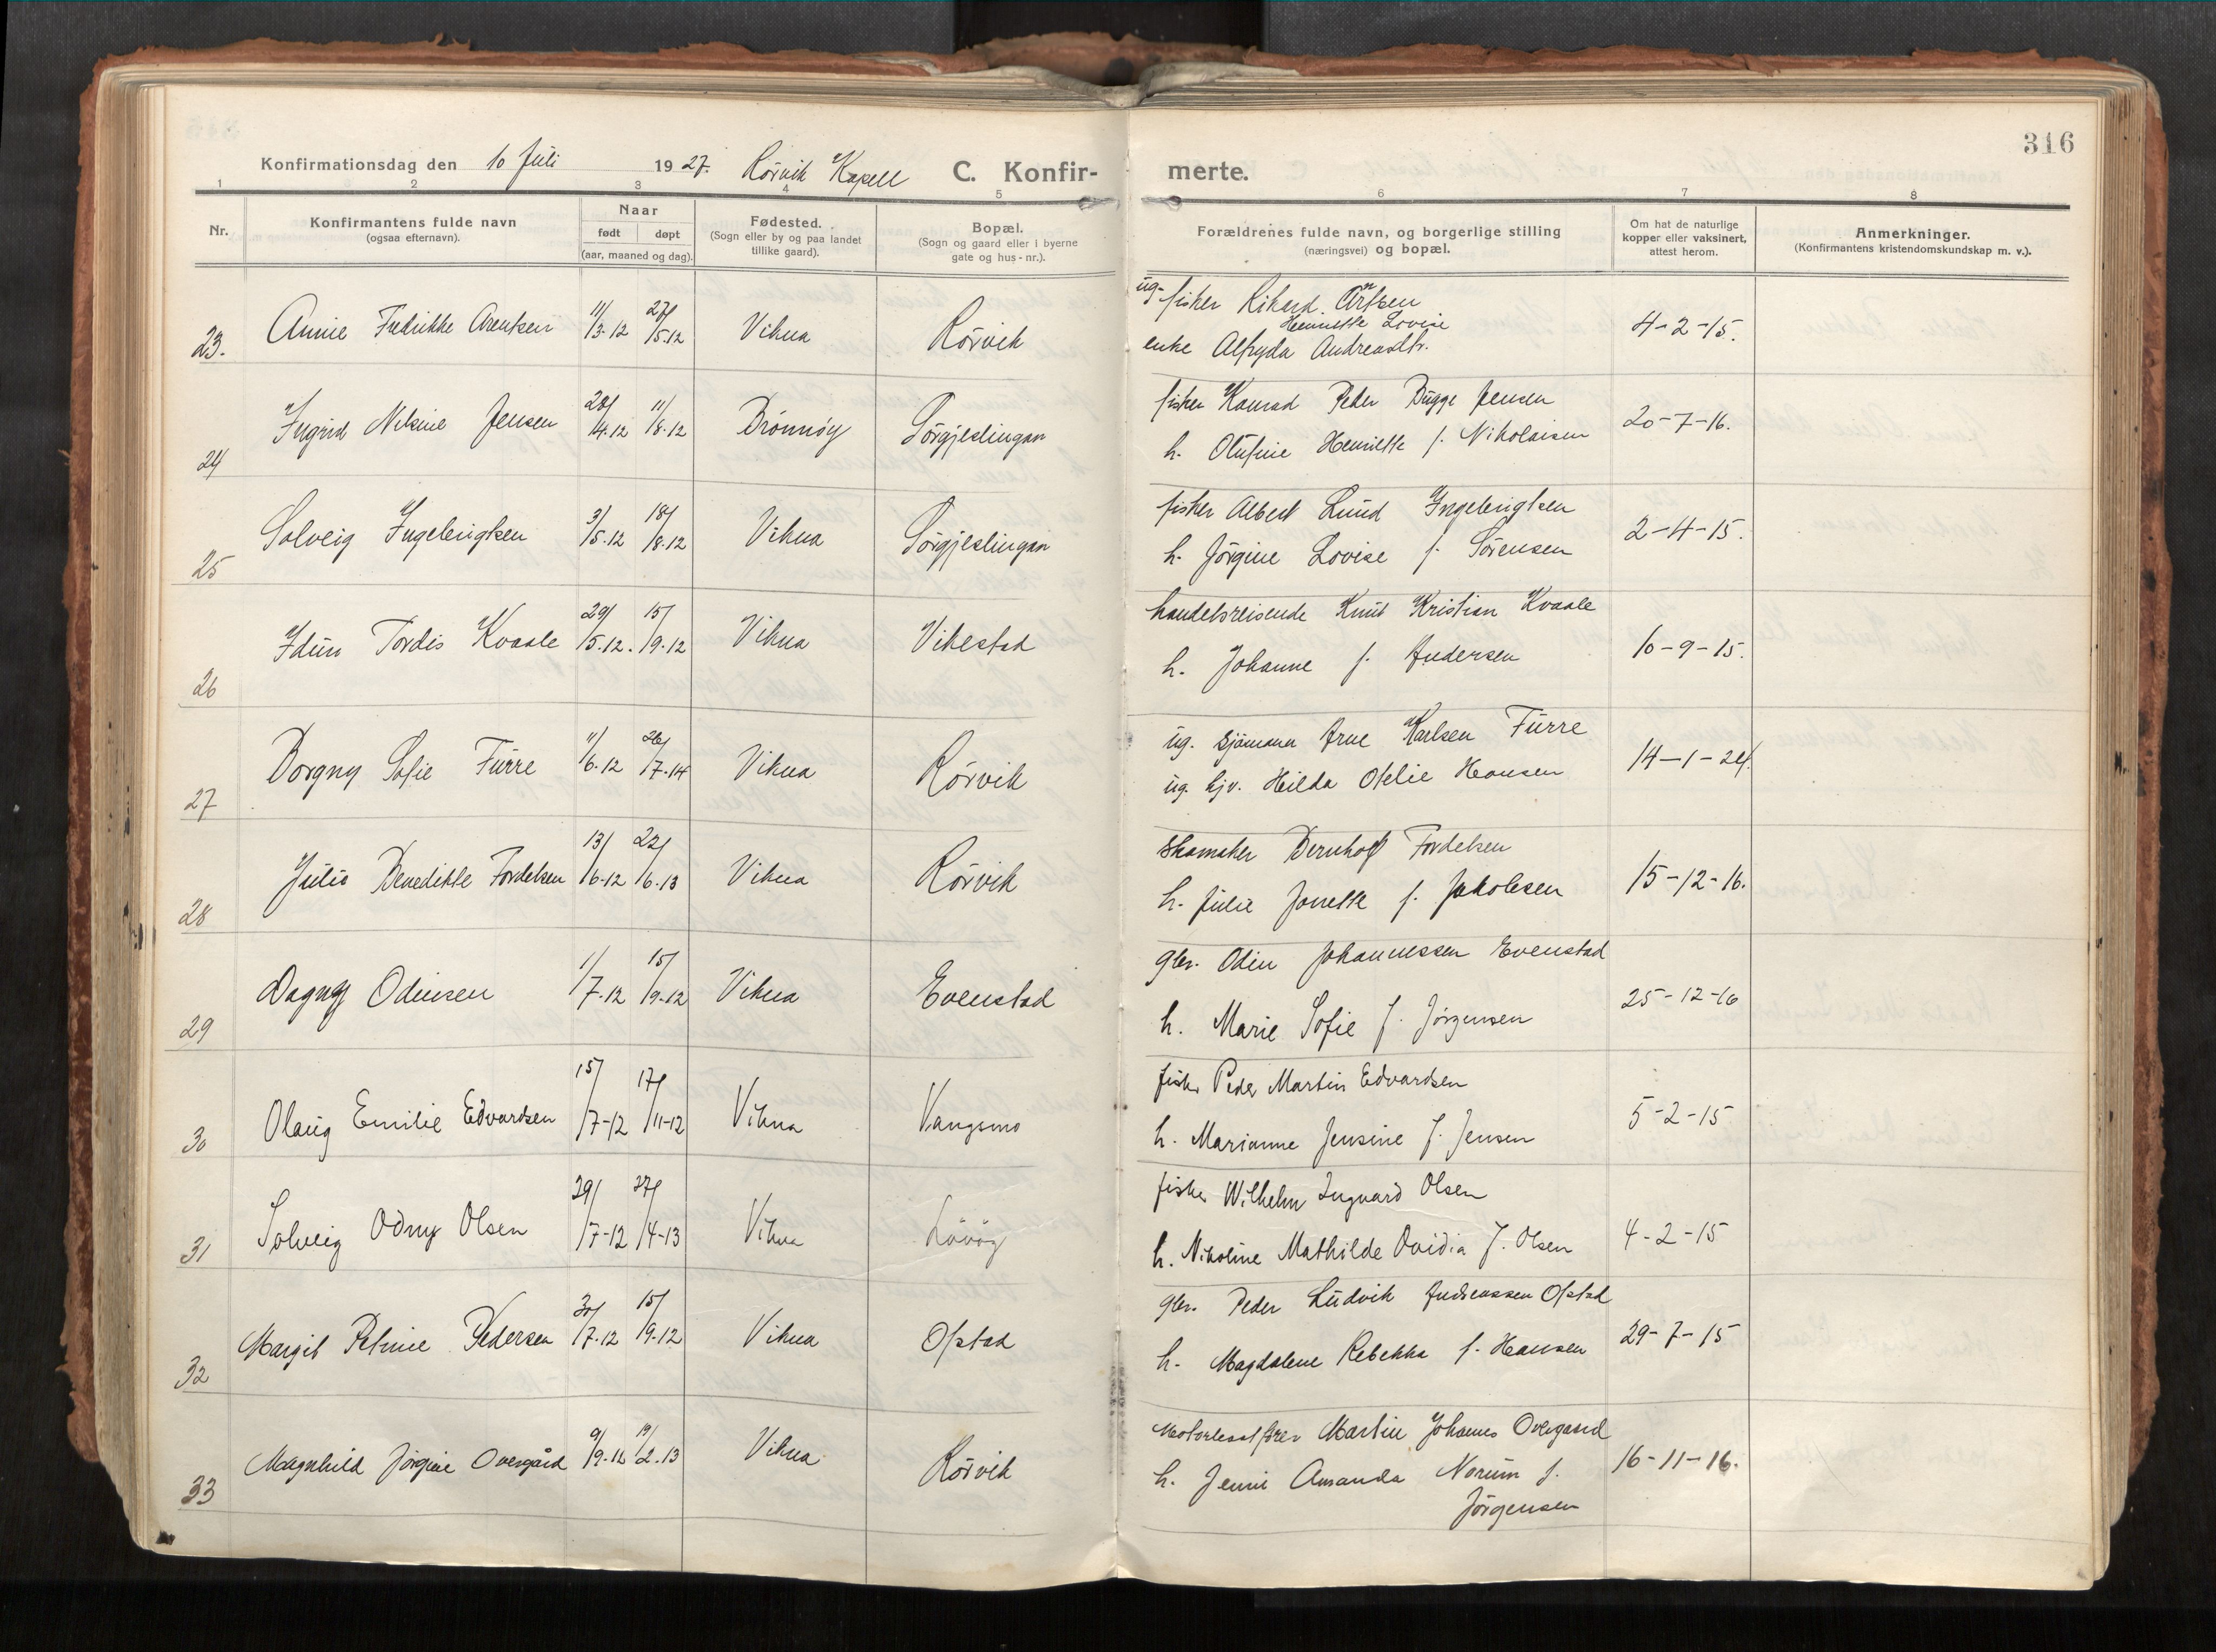 316
Konfirmationsdag den 10 Juli 1927. Rörvik Kapell C. Konfir- merte.
1 2 3 4 5 6 7 8
Nr.
Konfirmantens fulde navn
(ogsaa efternavn).
Naar
født døpt
(aar, maaned og dag).
Fødested.
(Sogn eller by og paa landet
tillike gaard).
Bopæl.
(Sogn og gaard eller i byerne
gate og hus-nr.).
Forældrenes fulde navn, og borgerlige stilling
(næringsvei) og bopæl.
Om hat de naturlige
kopper eller vaksinert,
attest herom.
Anmerkninger.
(Konfirmantens kristendomskundskap m. v.).
23. Annie Fredrikke Arentsen 11/3-12 27/5.12 Vikna Rörvik
ug. fisker Rikard Arntsen
Henriette Lovise
enke Alfryda Andreasdtr.
4-2-15.
24 Ingrid Nilsine Jensen 28/4.12 11/8.12 Brönnöy Sörgjeslingan
fisker Konrad Peder Bugge Jensen
h. Olufine Henriette f. Nikolaisen
20-7-16.
25 Solveig Ingebrigtsen 3/5.12 18/8.12 Vikna Sörgjeslingan
fisker Albert Lund Ingebrigtsen
h. Jörgine Lovise f. Sörensen
2-4-15.
26 Idun Tordis Kvaale 29/5.12. 15/9.12 Vikna Vikestad
handelsreisende Knut Kristian Kvaale
h. Johanne f. Andersen
10-9-15.
27 Borgny Sofie Furre 11/6.12 26/7.14 Vikna Rörvik
ug. sjömann Arne Karlsen Furre
ug. hjv. Hilda Otelie Hansen
14-1-24.
28 Julie Benedikte Fordelsen 13/6-12 22/6.13 Vikna Rörvik
skomaker Bernhof Fordelsen
h. Julie Jonette f. Jakobsen
15-12-16.
29 Dagny Odinsen 1/7.12 15/9-12 Vikna Evenstad
gbr. Odin Johannessen Evenstad
h. Marie Sofie f. Jörgensen
25-12-16
30 Olaug Emilie Edvardsen 15/7-12 17/11-12 Vikna Vangsmo
fisker Peder Martin Edvardsen
h. Marianne Jensine f. Jensen
5-2-15
31 Solveig Odny Olsen 29/7-12 27/4-13 Vikna Lövög
fisker Wilhelm Ingvard Olsen
h. Nikoline Mathilde Ovidia f. Olsen
4-2-15
32 Margit Petrine Pedersen 30/7.12 15/9.12 Vikna Ofstad
gbr. Peder Ludvik Andreassen Ofstad
h. Magdalene Rebekka f. Hansen
29-7-15
33 Magnhild Jörgine Overgård 9/9.12 19/2.13 Vikna Rörvik
Motorbaatförer Martin Johannes Overgaard
h. Jenni Amanda Norum f.
Jörgensen
16-11-16.